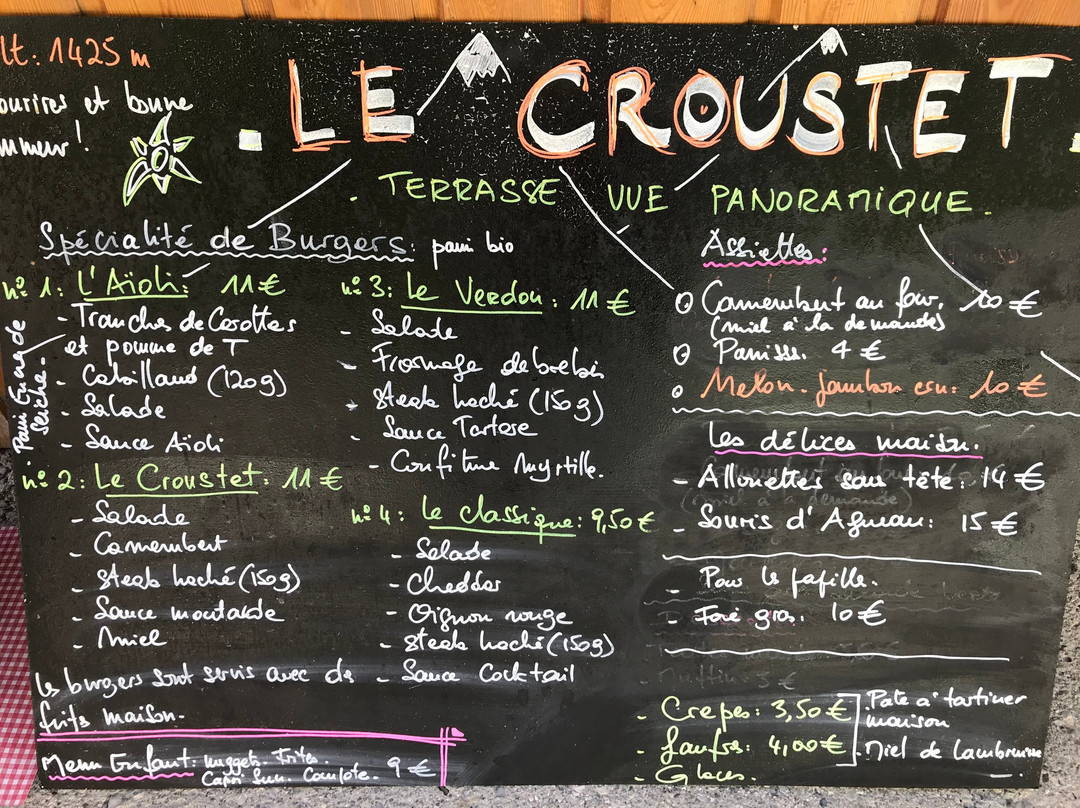 lt: 1425 m
ourires et bonne
mmeur!
LE CROUSTET
. TERRASSE VUE PANORAMIQUE.
Spécialité de Burgers: pain bio
n° 1: L'Aïoli: 11€
Pain Encre de
seiche.
- Tranches de Carottes
et pomme de T
- Cabillaud (120g)
- Salade
- Sauce Aïoli
n° 2: Le Croustet: 11€
- Salade
- Camembert
- steak haché (150g)
- Sauce moutarde
- Miel
les burgers sont servis avec de
frites maison.
Menu Enfant: nuggets. Frites.
Capri Sun. Compote. 9€
n° 3: Le Verdon: 11€
- Salade
- Fromage de brebis
- steak haché (150g)
- Sauce Tartare
- Confiture Myrtille.
n° 4: Le classique: 9,50€
- Salade
- Cheddar
- Oignon rouge
- steak haché (150g)
- Sauce Cocktail
Assiettes:
Camembert au four. 10€
(miel à la demande)
Panisse. 4€
Melon. jambon cru: 10€
Les délices maison.
- Allouettes sans tête: 14€
- Souris d'Agneau: 15€
- Pour la fafille.
- Foie gras. 10€
- Muffin 3€
- Crepes: 3,50€
- Gaufre: 4,00€
- Glaces.
. Pate à tartiner
maison
. Miel de Lambruisse